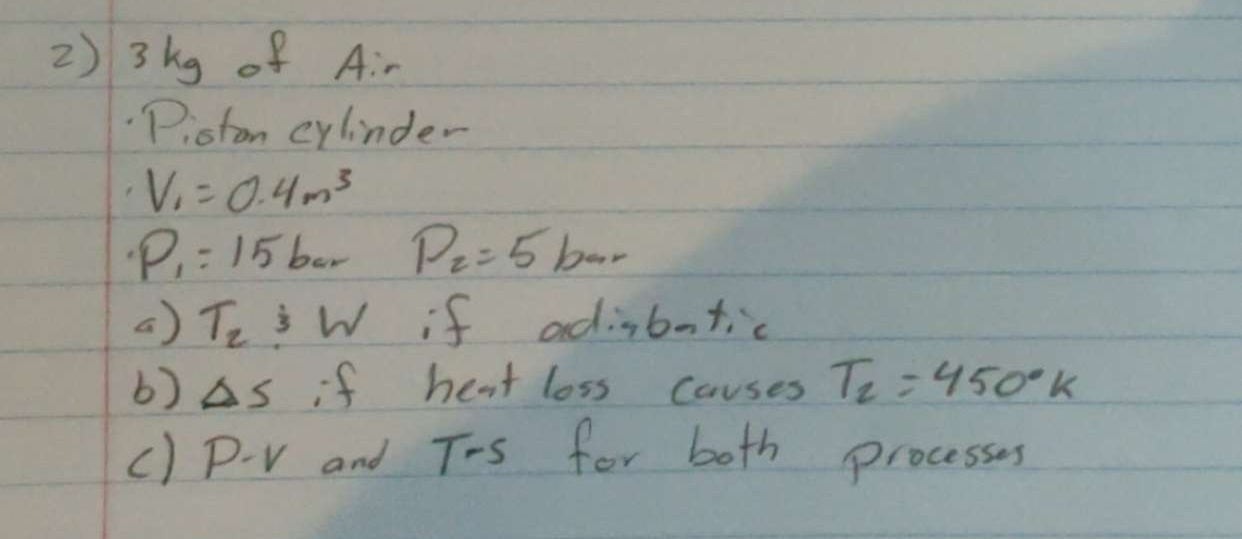 2) 3 kg of Air
· Piston cylinder
· V₁ = 0.4 m³
· P₁ = 15 bar P₂ = 5 bar
a) T₂ & W if adiabatic
b) ΔS if heat loss causes T₂ = 450°K
c) P-V and T-S for both processes